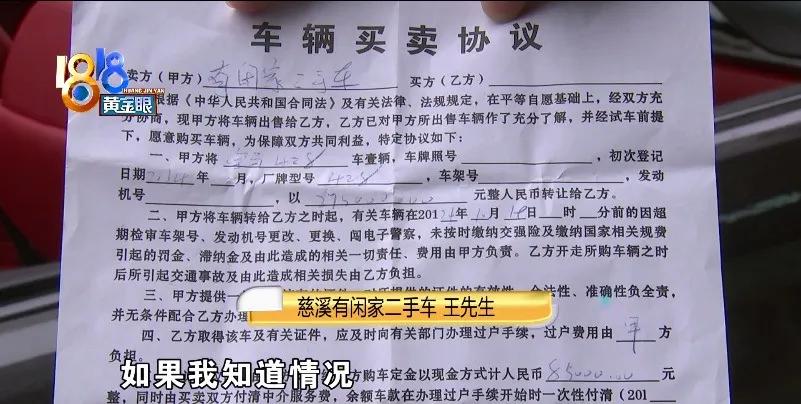 车辆买卖协议
1818
HUANG JIN YAN
黄金眼
卖方（甲方）有闲家二手车 买方（乙方）
根据《中华人民共和国合同法》及有关法律、法规规定，在平等自愿基础上，经双方充
分协商，现甲方将车辆出售给乙方，乙方已对甲方所出售车辆作了充分了解，并经试车前提
下，愿意购买车辆，为保障双方共同利益，特定协议如下：
一、甲方将宝马428车壹辆，车牌照号，初次登记
日期2014年月，厂牌型号428，车架号，发动
机号，以元整人民币转让给乙方。
二、甲方将车辆转给乙方之时起，有关车辆在201年月日时分前的因超
期检审车架号、发动机号更改、更换、闯电子警察，未按时缴纳交强险及缴纳国家相关规费
引起的罚金、滞纳金及由此造成的相关一切责任、费用由甲方负责。乙方开走所购车辆之时
后所引起交通事故及由此造成相关损失由乙方负担。
三、甲方提供一合法性、准确性负全责，
并无条件配合乙方办理
慈溪有闲家二手车 王先生
四、乙方取得该车及有关证件，应及时向有关部门办理过户手续，过户费用由甲方
负担。
如果我知道情况
方购车定金以现金方式计人民币85000.00元
整，同时由买卖双方付清中介服务费，余额车款在办理过户手续开始时一次性付清（201